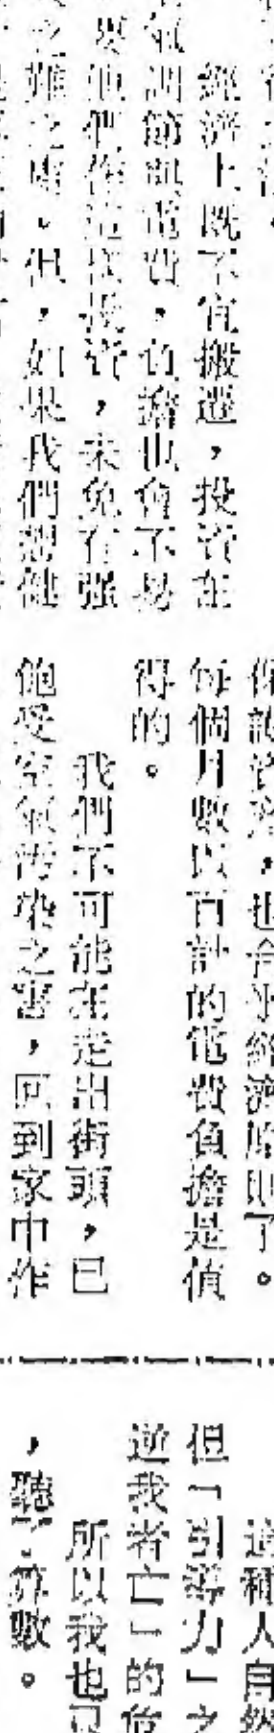 經濟上既不宜搬遷，投資在
氣調節與電費，負擔也會不易
要他們作這樣投資，未免有强
之難之處。但，如果我們想健
保護資產，也合乎經濟原則了。
每個月數以百計的電費負擔是值
得的。
我們不可能在走出街頭，已
飽受空氣污染之害，回到家中作
這種人自然
但「引導力」之
逆我者亡」的危
所以我也只
，聽了算數。